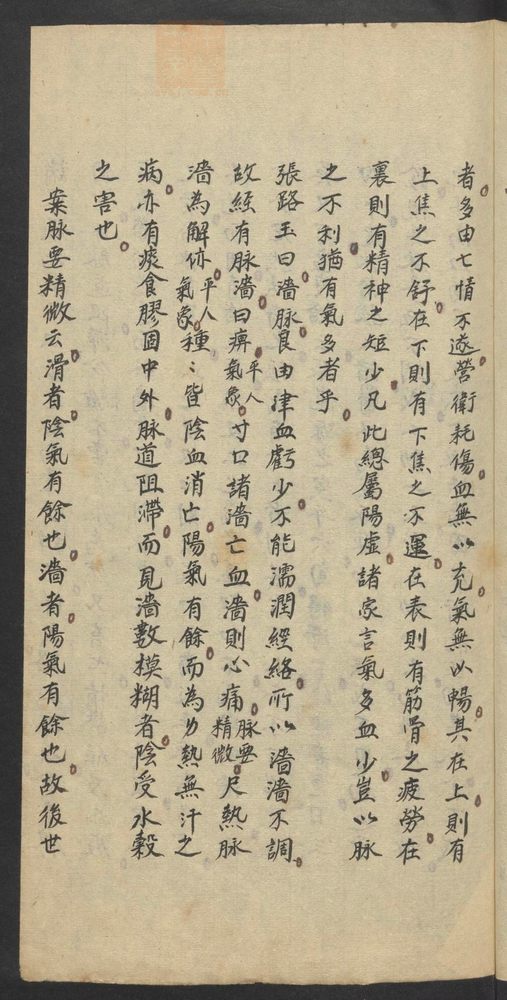 者多由七情不遂營衛耗傷血無以充氣無以暢其在上則有
上焦之不舒在下則有下焦之不運在表則有筋骨之疲勞在
裏則有精神之短少凡此總屬陽虛諸家言氣多血少豈以脉
之不利猶有氣多者乎
張路玉曰濇脉良由津血虧少不能濡潤經絡所以濇濇不調
故經有脉濇曰痹平人氣象寸口諸濇亡血濇則心痛脉要精微尺熱脉
濇為解㑊平人氣象種〻皆陰血消亡陽氣有餘而為身熱無汗之
病亦有痰食膠固中外脉道阻滯而見濇數模糊者陰受水穀
之害也
案脉要精微云滑者陰氣有餘也濇者陽氣有餘也故後世